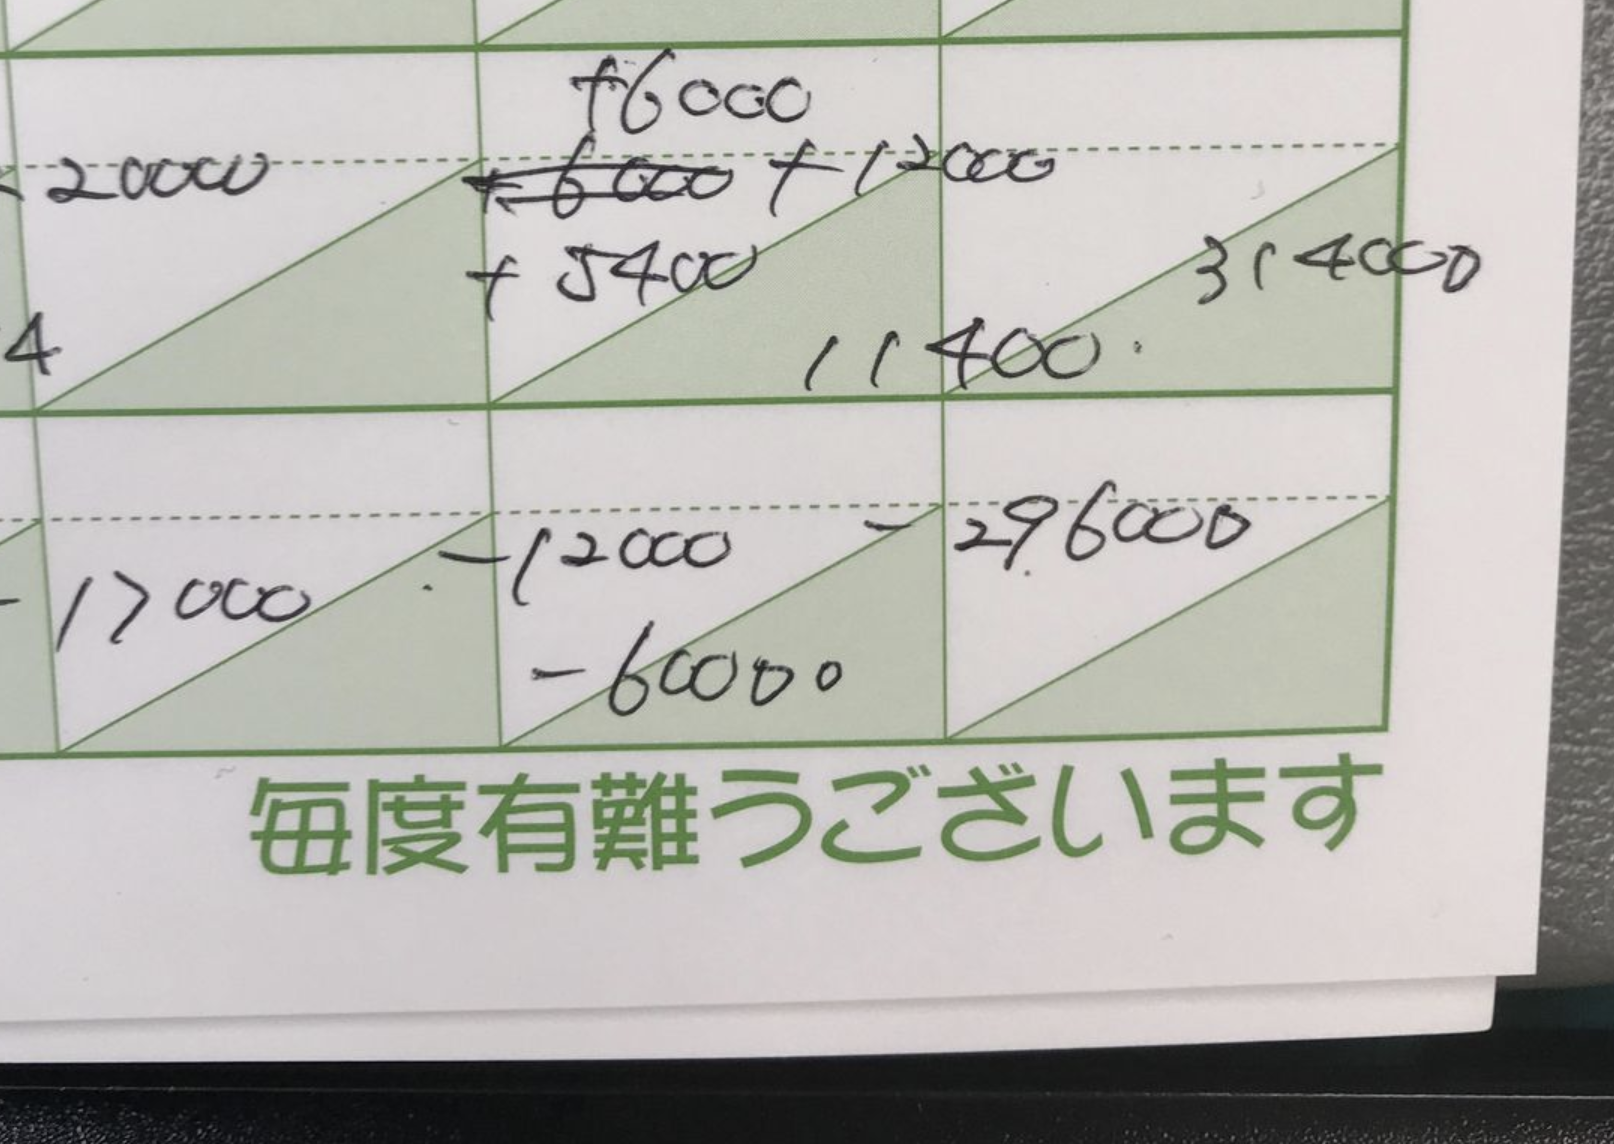 +6000
20000 +6000 +12000
+5400
314000
4
11400
-17000 -12000 -296000
-60000
毎度有難うございます